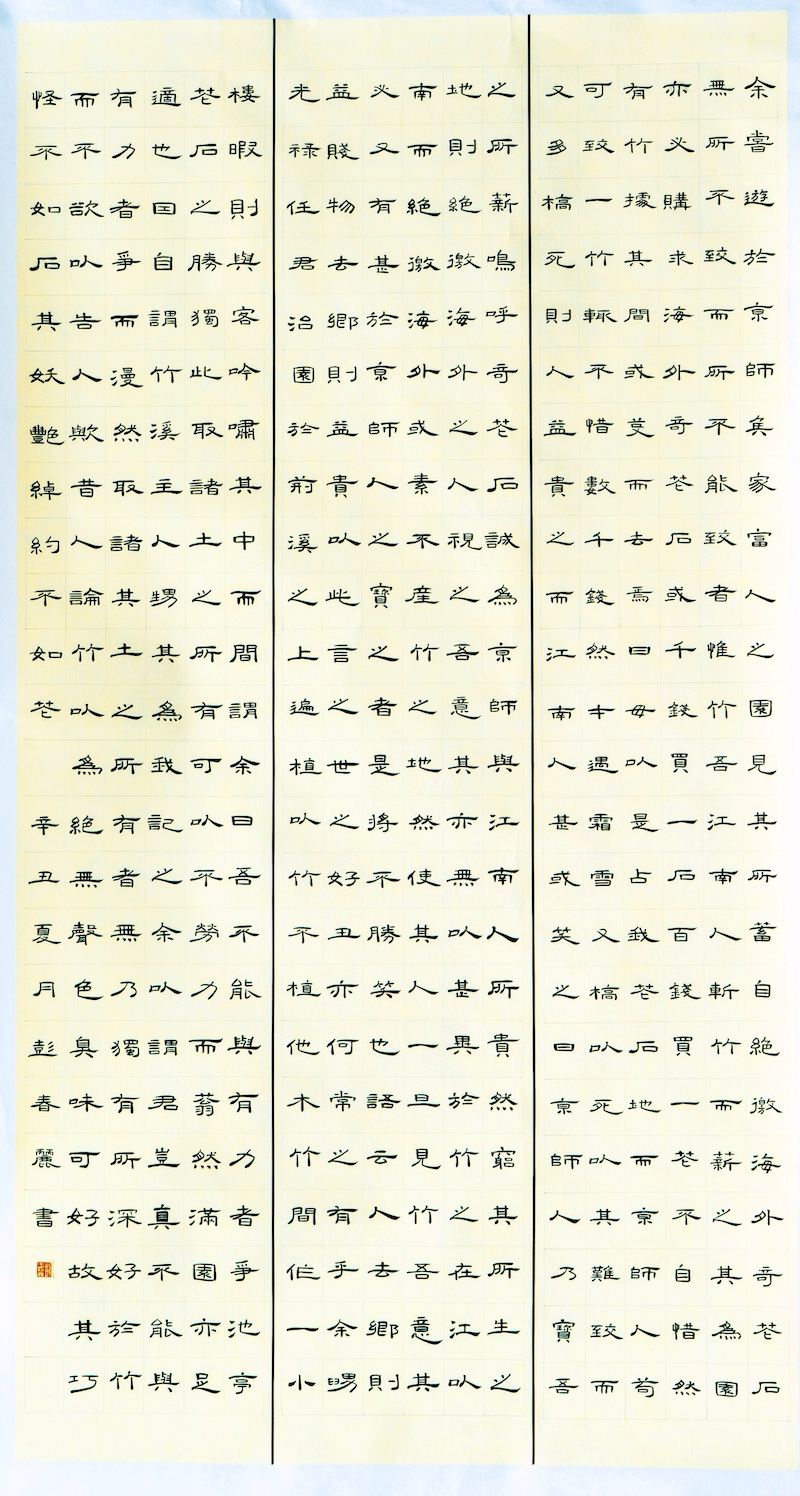 余嘗遊於京師矦家富人之園見其所蓄自絕徼海外奇花石
無所不致而所不能致者惟竹吾江南人斬竹而薪之其為園
亦必購求海外奇花石或千錢買一石百錢買一花不自惜然
有竹據其間或芟而去焉曰毋以是占我花石地而京師人苟
可致一竹輒不惜數千錢然才遇霜雪又槁以死以其難致而
又多槁死則人益貴之而江南人甚或笑之曰京師人乃寶吾
之所薪鳴呼奇花石誠為京師與江南人所貴然窮其所生之
地則絕徼海外之人視之吾意其亦無以甚異於竹之在江以
南而絕徼海外或素不産竹之地然使其人一旦見竹吾意其
必又有甚於京師人之寶之者是將不勝笑也語云人去鄉則
益賤物去鄉則益貴以此言之世之好丑亦何常之有乎余甥
光祿任君治園於荊溪之上遍植以竹不植他木竹間作一小
樓暇則與客吟嘯其中而間謂余曰吾不能與有力者爭池亭
花石之勝獨此取諸土之所有可以不勞力而蓊然滿園亦足
適也因自謂竹溪主人甥其為我記之余以謂君豈真不能與
有力者爭而漫然取諸其土之所有者無乃獨有所深好於竹
而不欲以告人歟昔人論竹以為絕無聲色臭味可好故其巧
怪不如石其妖豔綽約不如花 辛丑夏月彭春麗書